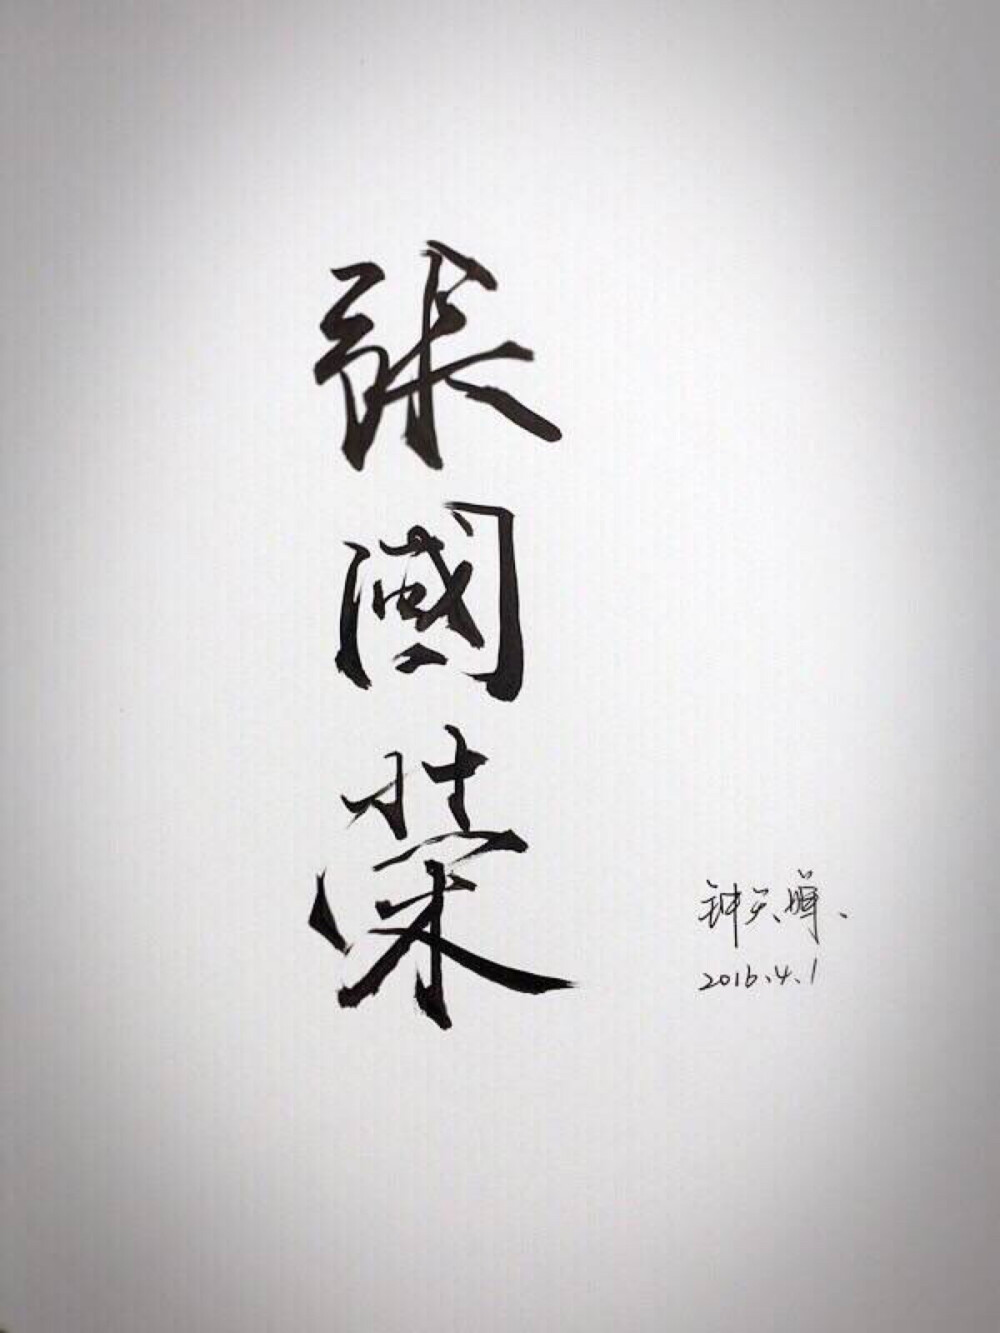 張國榮
钟天辉、
2016.4.1